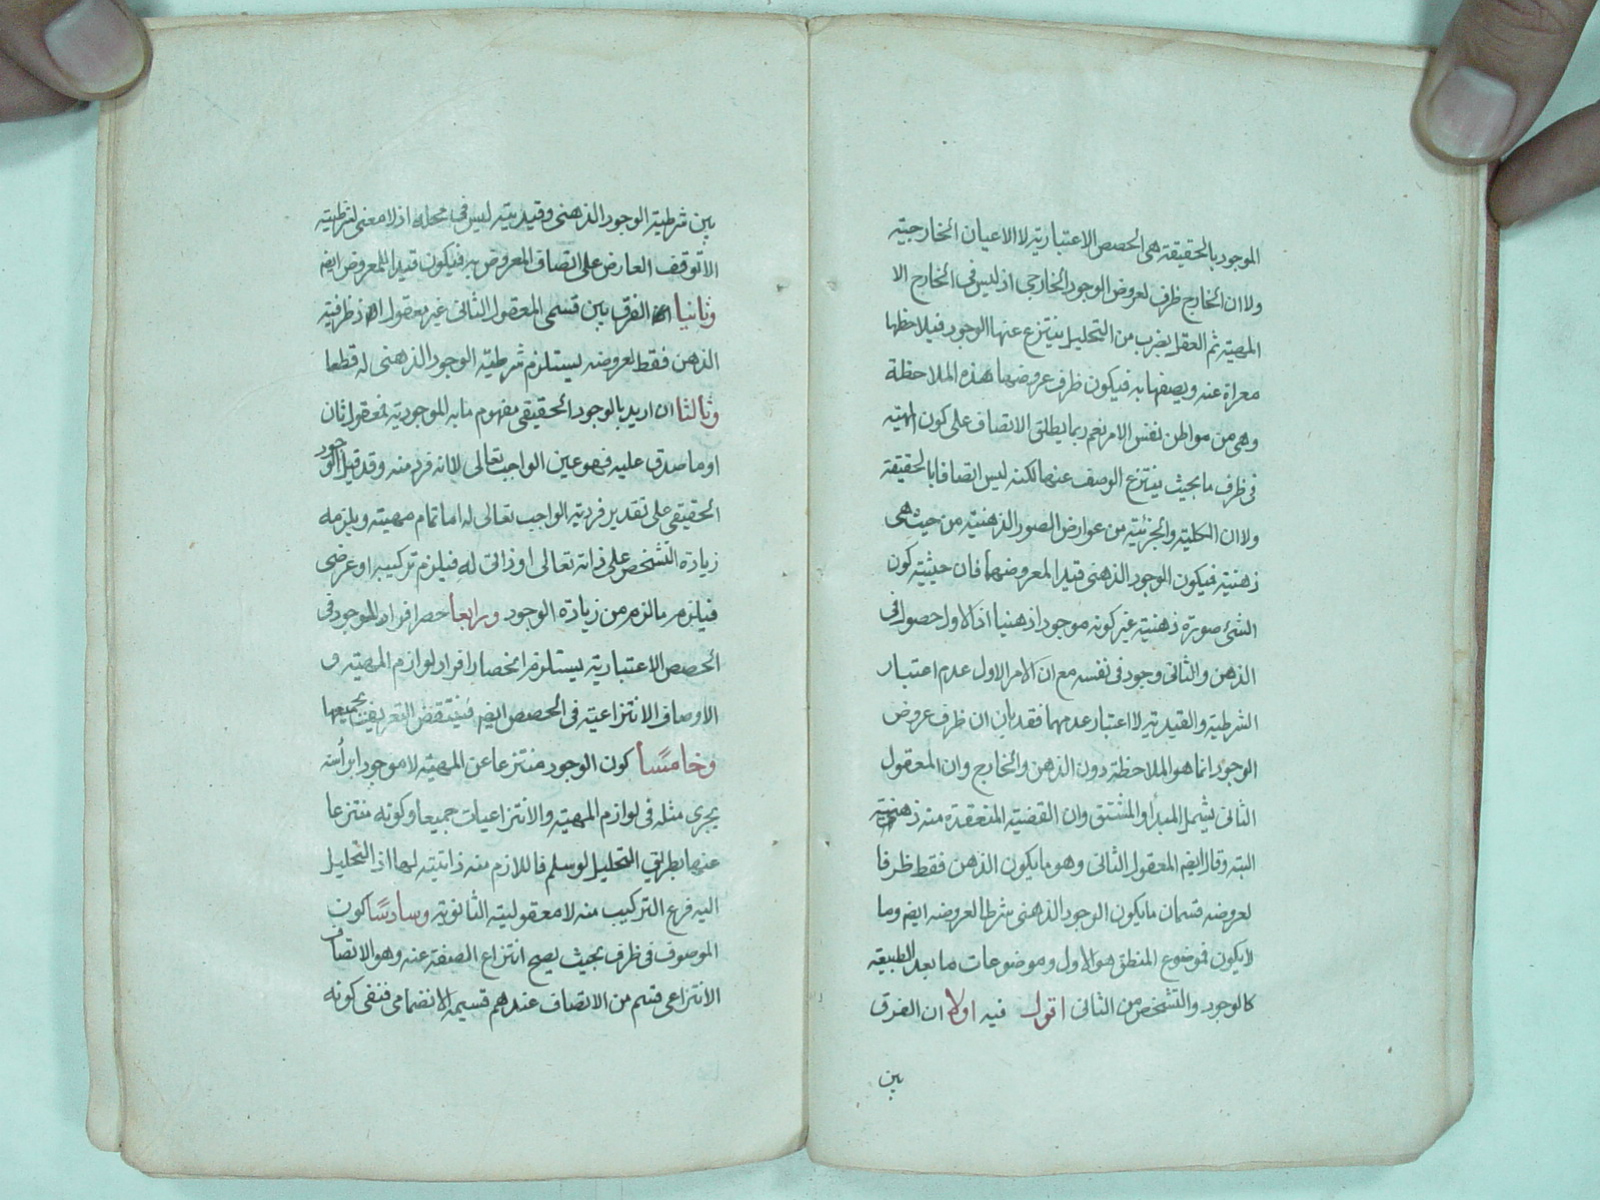 الموجود بالحقيقة هى الحصص الاعتبارية لا الاعيان الخارجية
ولا ان الخارج ظرف لعروض الوجود الخارجي اذ ليس فى الخارج الا
المهية ثم العقل بضرب من التحليل ينتزع عنها الوجود فيلاحظها
معراة عنه ويصفها به فيكون ظرف عروضها هذه الملاحظة
وهى من مواطن نفس الامر نعم ربما يطلق الاتصاف على كون المهية
فى ظرف ما بحيث ينتزع الوصف عنها لكنه ليس اتصافا بالحقيقة
ولا ان الكلية والجزئية من عوارض الصور الذهنية من حيث هى
ذهنية فيكون الوجود الذهنى قيدا لمعروضهما فان حيثية كون
الشئ صورة ذهنية غير كونه موجودا ذهنيا اذ الاول حصول فى
الذهن والثانى وجود فى نفسه مع ان الامر الاول عدم اعتبار
الشرطية والقيدية لا اعتبار عدمهما فقد بان ان ظرف عروض
الوجود انما هو الملاحظة دون الذهن والخارج وان المعقول
الثانى يشمل المبدأ والمشتق وان القضية المنعقدة منه ذهنية
البتة وقال ايضم المعقول الثانى وهو ما يكون الذهن فقط ظرفا
لعروضه قسمان ما يكون الوجود الذهنى شرطا لعروضه ايضم وما
لا يكون فموضوع المنطق هو الاول وموضوعات ما بعد الطبيعة
كالوجود والتشخص من الثانى اقول فيه اولا ان الفرق
بين
بين شرطية الوجود الذهنى وقيديته ليس فى محله اذ لا معنى لشرطيته
الا توقف العارض على اتصاف المعروض به فيكون قيدا للمعروض ايضم
وثانيا الفرق بين قسمى المعقول الثانى غير معقول اذ ظرفية
الذهن فقط لعروضه يستلزم شرطية الوجود الذهنى له قطعا
وثالثا ان اريد بالوجود الحقيقى مفهوم ما به الموجودية فمعقول ثان
او ما صدق عليه فهو عين الواجب تعالى لانه فرد منه وقد قيل الوجود
الحقيقى على تقدير فردية الواجب تعالى له اما تمام مهيته ويلزمه
زيادة التشخص على ذاته تعالى او ذاتى له فيلزم تركيبه او عرضى
فيلزم ما لزم من زيادة الوجود ورابعا حصر افراد الموجود فى
الحصص الاعتبارية يستلزم انحصار افراد لوازم المهية و
الاوصاف الانتزاعية فى الحصص ايضم فينتقض التعريف بجميعها
وخامسًا كون الوجود منتزعا عن المهية لا موجودا برأسه
يجرى مثله فى لوازم المهية والانتزاعيات جميعا وكونه منتزعا
عنها بطريق التحليل لو سلم فاللازم منه ذاتيته لها اذ التحليل
اليه فرع التركيب منه لا معقوليته الثانوية وسادسًا كون
الموصوف فى ظرف بحيث يصح انتزاع الصفة عنه وهو الاتصاف
الانتزاعى قسم من الاتصاف عندهم قسيمه الانضمامى فنفى كونه